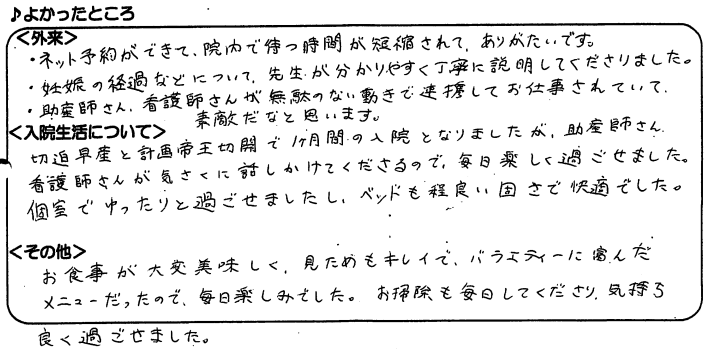 ♪よかったところ
<外来>
・ネット予約ができて、院内で待つ時間が短縮されて、ありがたいです。
・妊娠の経過などについて、先生が分かりやすく丁寧に説明してくださりました。
・助産師さん、看護師さんが無駄のない動きで連携してお仕事されていて、
素敵だなと思います。
<入院生活について>
切迫早産と計画帝王切開で1ヶ月間の入院となりましたが、助産師さん
看護師さんが気さくに話しかけてくださるので、毎日楽しく過ごせました。
個室でゆったりと過ごせましたし、ベッドも程良い固さで快適でした。
<その他>
お食事が大変美味しく、見ためもキレイで、バラエティーに富んだ
メニューだったので、毎日楽しみでした。お掃除も毎日してくださり、気持ち
良く過ごせました。